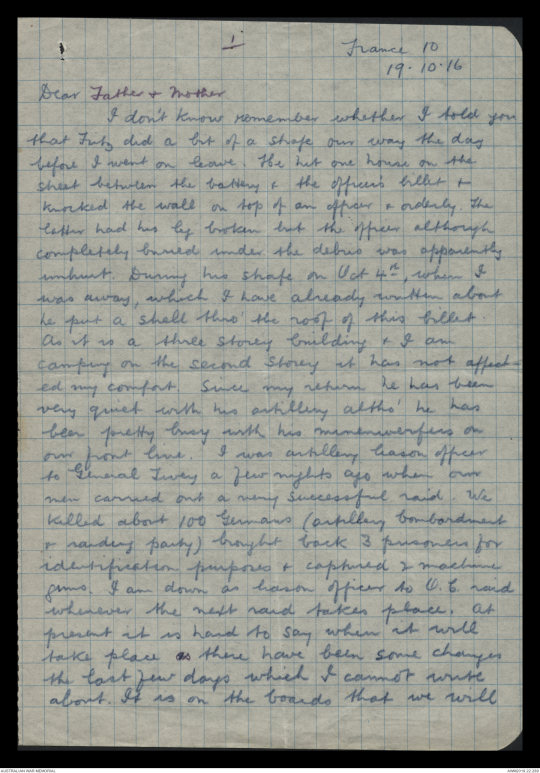 1
France 10
19.10.16
Dear Father & Mother
I don't know remember whether I told you
that Fritz did a bit of a strafe our way the day
before I went on leave. He hit one house on the
street between the battery & the officer's billet &
knocked the wall on top of an officer & orderly. The
latter had his leg broken but the officer although
completely buried under the debris was apparently
unhurt. During his strafe on Oct 4th, when I
was away, which I have already written about
he put a shell thro' the roof of this billet.
As it is a three storey building & I am
camping on the second storey it has not affect-
ed my comfort. Since my return he has been
very quiet with his artillery altho' he has
been pretty busy with his minenwerfers on
our front line. I was artillery liason officer
to General Tivey a few nights ago when our
men carried out a very successful raid. We
killed about 100 Germans (artillery bombardment
& raiding party) brought back 3 prisoners for
identification purposes & captured 2 machine
guns. I am down as liason officer to O.C. raid
whenever the next raid takes place. At
present it is hard to say when it will
take place as there have been some changes
the last few days which I cannot write
about. It is on the boards that we will
AUSTRALIAN WAR MEMORIAL